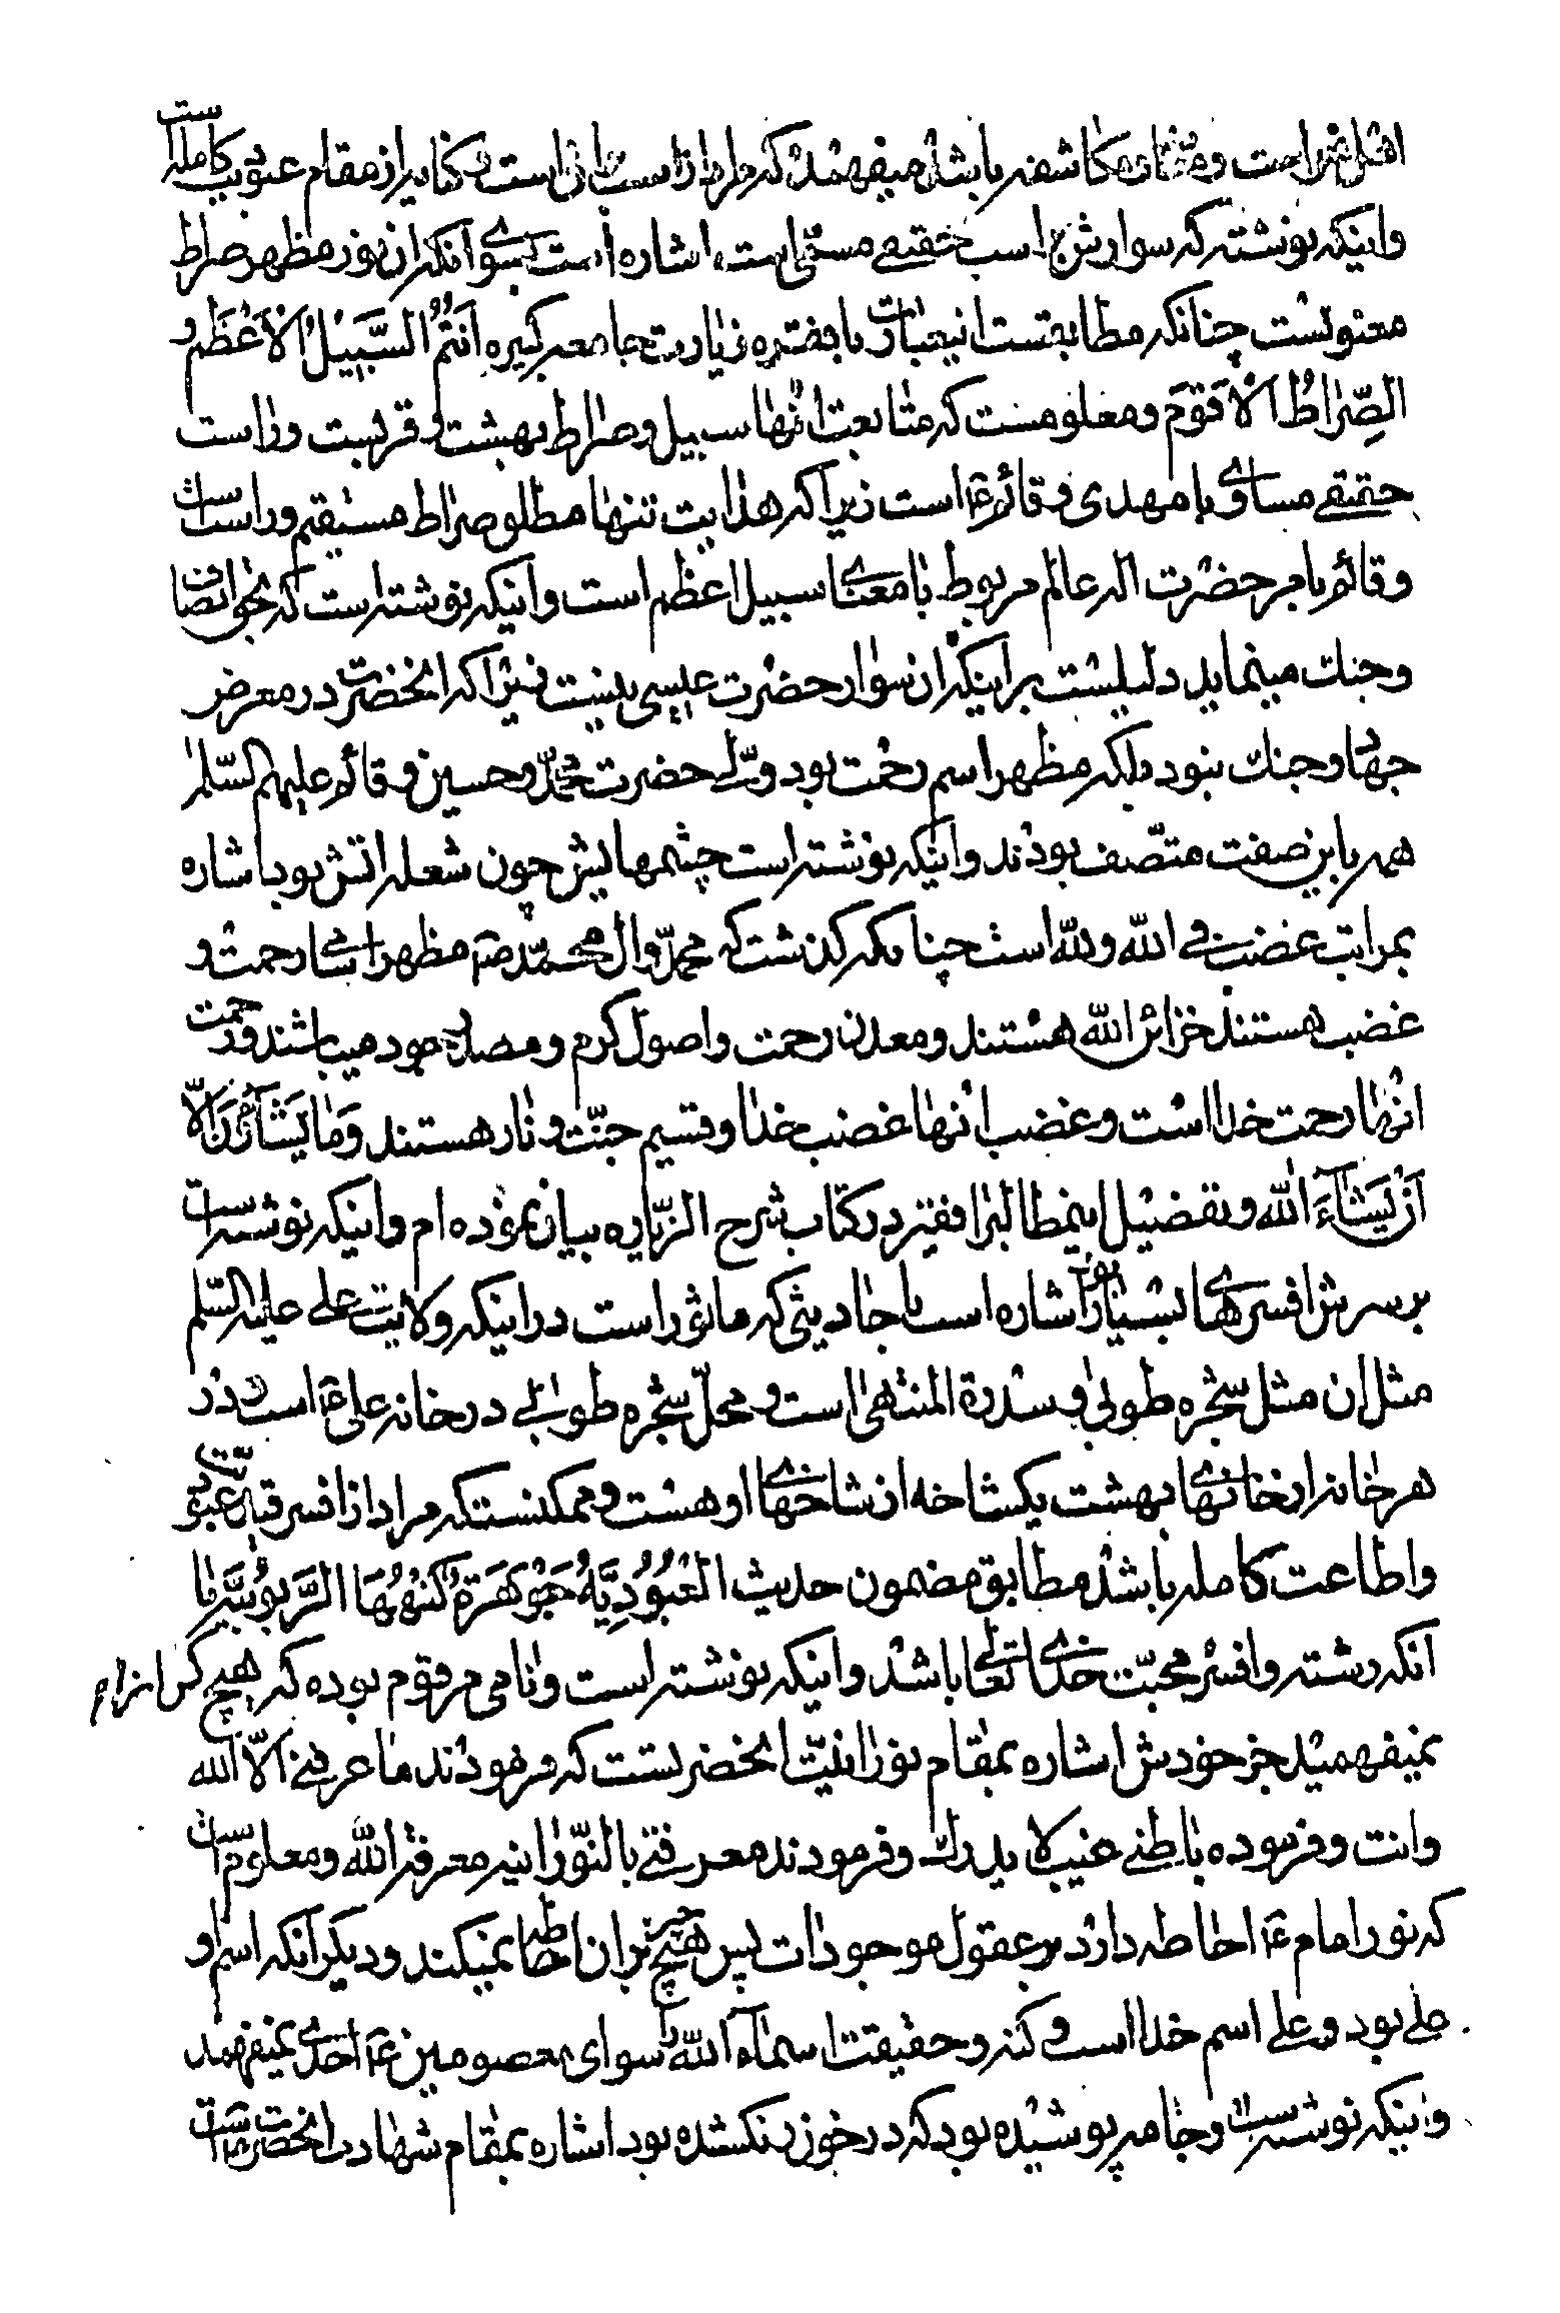 باشد میفهمد که است و کنایه از مقام عبودیت کامله است
و اینکه نوشته که سوارش اسب حقیقی مسمی است اشاره است بسوی انکه ان نور مظهر صراط
معنویست چنانکه مطابقست اینعبارت با فقره زیارت جامعه کبیره اَنْتُمُ السَّبِیْلُ الْاَعْظَمُ و
الصِّرٰاطُ الْاَقْوَمُ و معلومست که متابعت انها سبیل و صراط بهشت و قربست و راست
حقیقی مساوی با مهدی و قائم ع است زیرا که هدایت تنها مطلو صراط مستقیم و راست است
و قائم بامر حضرت اله عالم مربوط با معنای سبیل اعظم است و اینکه نوشته است که بحق انصاف
و جنك مینماید دلیلیست بر اینکه ان سوار حضرت عیسی نیست زیرا که انحضرت در معرض
جهاد و جنك نبود بلکه مظهر اسم رحمت بود ولی حضرت محمّد و حسین و قائم علیهم السّلم
همه باین صفت متّصف بودند و اینکه نوشته است چشمهایش چون شعله اتش بود اشاره
بمراتب غضب فی الله و لله است چنانکه کذشت که محمّد و ال محمّد ص مظهر اسمای رحمت و
غضب هستند خزائن الله هستند و معدن رحمت و اصول کرم و مصدر جود میباشند و رحمت
انها رحمت خدا است و غضب انها غضب خدا و قسیم جنّت و نار هستند وَ مٰا یَشٰآؤُنَ اِلّا
اَنْ یَشٰآءَ اللّٰه و تفضیل اینمطالبرا فقیر در کتاب شرح الزّیاره بیان نموده ام و اینکه نوشته است
بر سرش افسرهای بسیار بود اشاره است باحادیثی که ماثور است در اینکه ولایت علی علیه السّلم
مثل ان مثل شجره طوبی و سدرة المنتهی است و محلّ شجره طوبی در خانه علی ع است و در
هر خانه از خانهای بهشت یکشاخه از شاخهای او هست و ممکنست که مراد از افسر قبّه عبودیّت
و اطاعت کامله باشد مطابق مضمون حدیث الْعُبُوُدِیَّهُ جَوْهَرَةٌ کُنْهُهَا الرَّبوُبیَّه یا
انکه رشته و افسر محبّت خدای تعالی باشد و اینکه نوشته است و نامی مرقوم بوده که هیچ کس انرا
نمیفهمید جز خودش اشاره بمقام نورانیّت انحضرتست که فرمودند ما عرفنی الّا الله
و انت و فرموده باطنی غیب لا یدرك و فرمودند معرفتی بالنّورانیه معرفة الله و معلوم است
که نور امام ع احاطه دارد بر عقول موجودات پس هیچ چیز بر ان احاطه نمیکند و دیکر انکه اسم او
علی بود و علی اسم خدا است و کنه و حقیقت اسمآء الله را سوای معصومین ع احدی نمیفهمد
و اینکه نوشته است و جامه پوشیده بود که در خون رنك شده بود اشاره بمقام شهادت انحضرتست